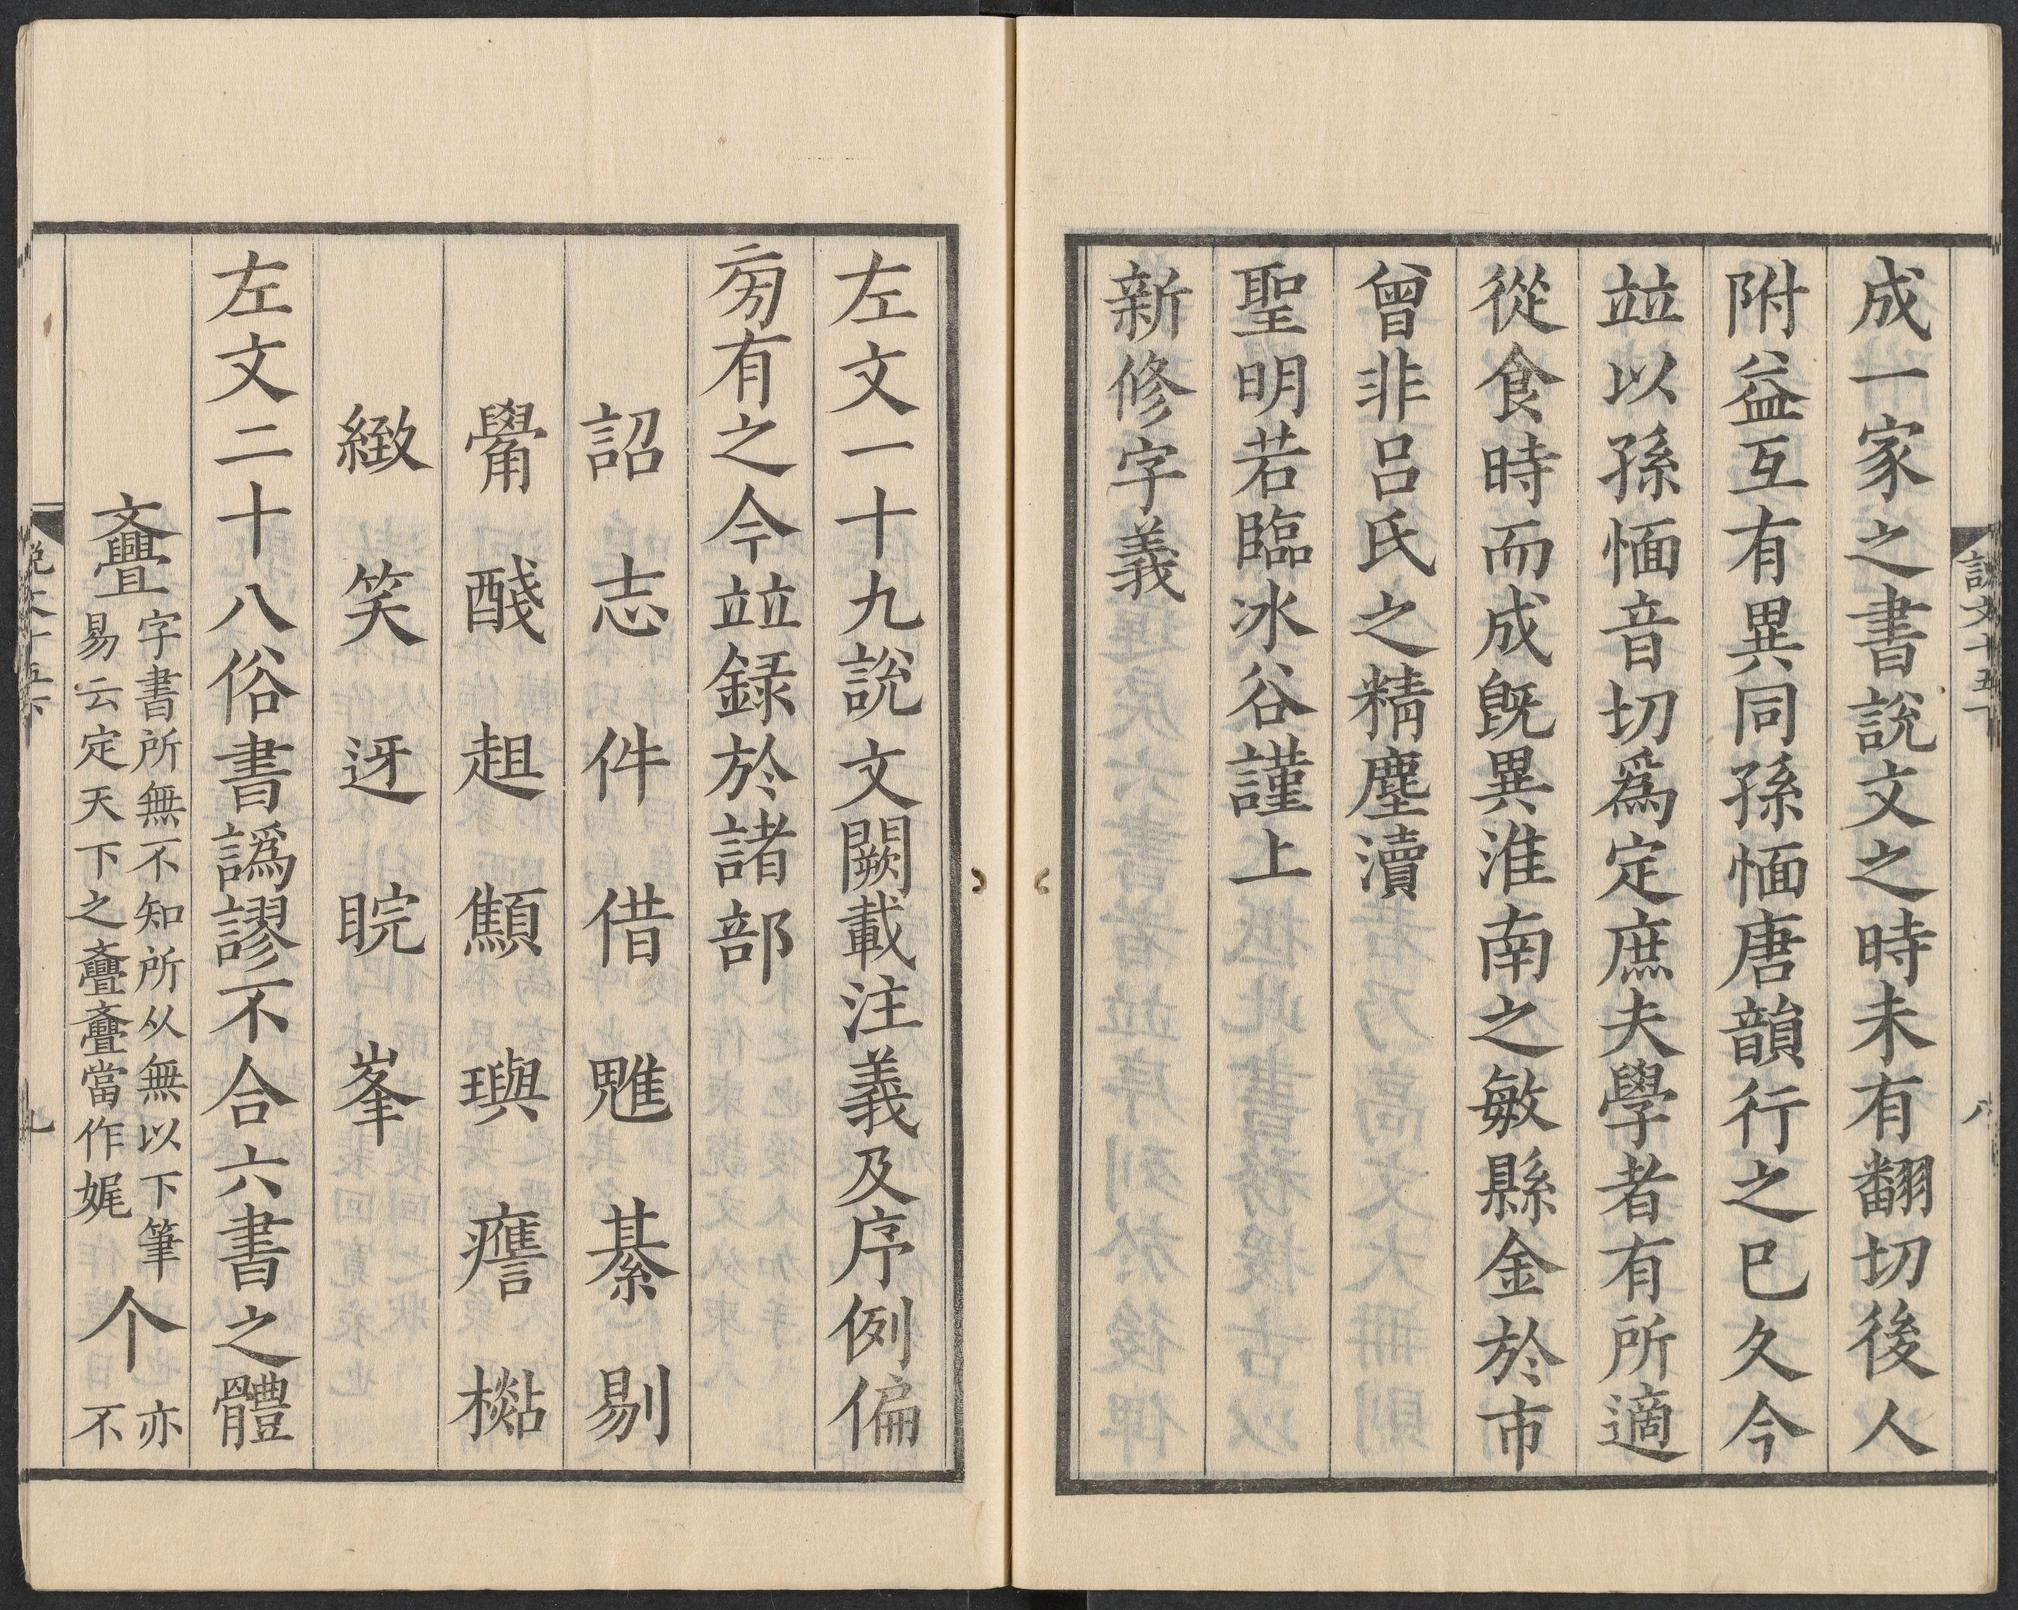 成一家之書說文之時未有翻切後人
附益互有異同孫愐唐韻行之已久今
竝以孫愐音切爲定庶夫學者有所適
從食時而成旣異淮南之敏縣金於市
曾非呂氏之精塵瀆
聖明若臨冰谷謹上
新修字義
左文一十九說文闕載注義及序例偏
旁有之今竝録於諸部
詔志件借魋綦剔
觷醆趄顦璵譍檆
緻笑迓睆峯
左文二十八俗書譌謬不合六書之體
亹
字書所無不知所从無以下筆
易云定天下之亹亹當作娓
个
亦
不
說文十五下
八
說文十五下
九